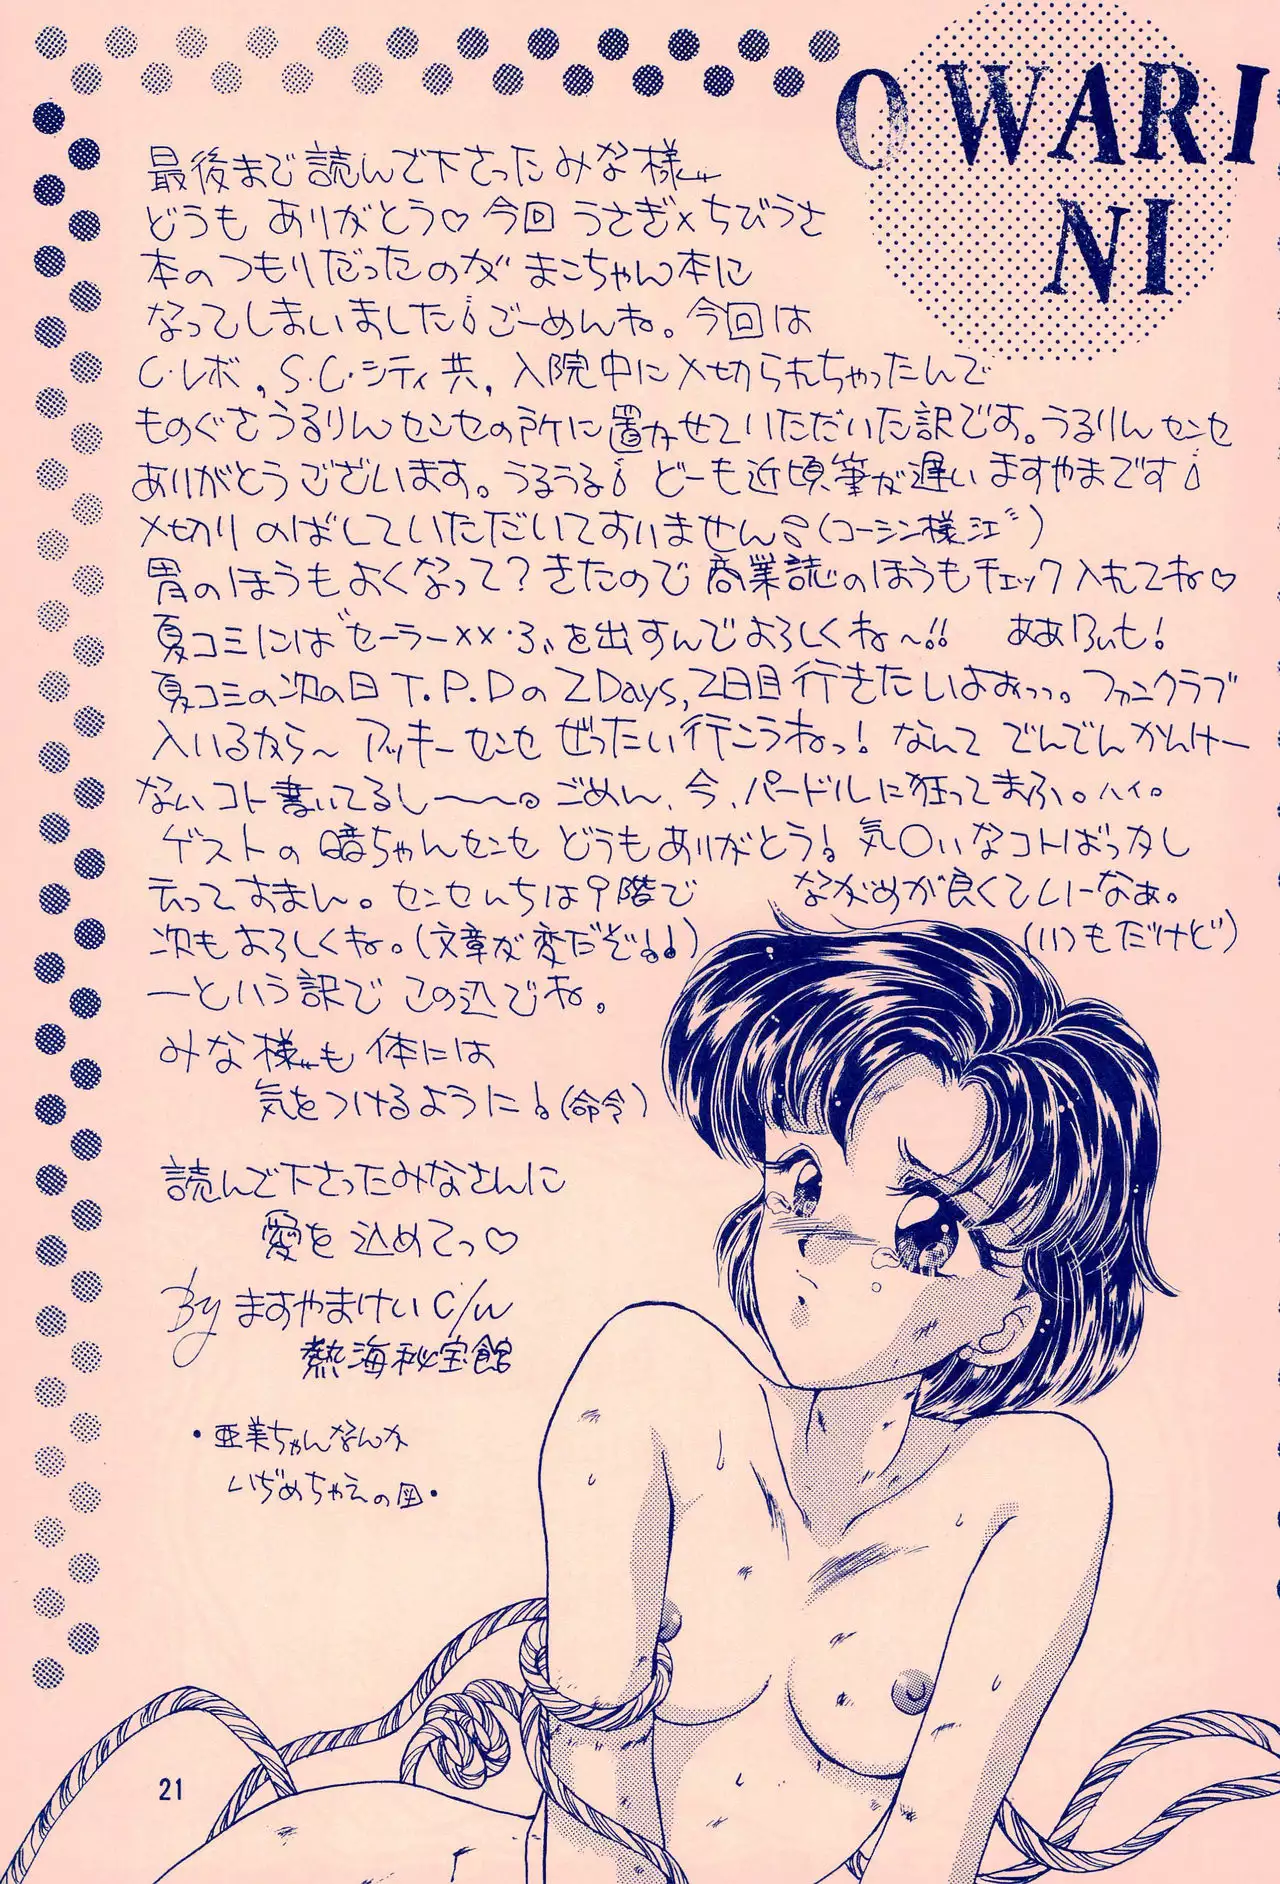 OWARI
NI
最後まで読んで下さったみな様
どうもありがとう♡今回うさぎ×ちびうさ
本のつもりだったのがまこちゃん本に
なってしまいました!ごーめんね。今回は
C・レボ,S.C.シティ共,入院中に〆切られちゃったんで
ものぐさうるりんセンセの所に置かせていただいた訳です。うるりんセンセ
ありがとうございます。うるうる! どーも近頃筆が遅いますやまです!
〆切りのばしていただいてすいません(コーシン様江)
胃のほうもよくなって?きたので商業誌のほうもチェック入れてね♡
夏コミには"セーラー××・ぶ"を出すんでよろしくね〜!!
夏コミの次の日T.P.Dの2Days,2日目行きたいよぉっっ。ファンクラブ
入いるから〜アッキーセンセぜったい行こうねっ!なんてでんでんかんけー
ないコト書いてるし〜〜。ごめん、今、パードルに狂ってまふ。ハイ。
ゲストの暗ちゃんセンセどうもありがとう!気〇いなコトばっかし
云ってすまん。センセんちは9階で ながめが良くていーなぁ。
次もよろしくね。(文章が変だぞ!!) (いつもだけど)
ーという訳でこの辺でね。
みな様も体には
気をつけるように!(命令)
読んで下さったみなさんに
愛を込めてっ♡
By ますやまけい c/w
熱海秘宝館
・亜美ちゃんなんか
いぢめちゃえの図・
21